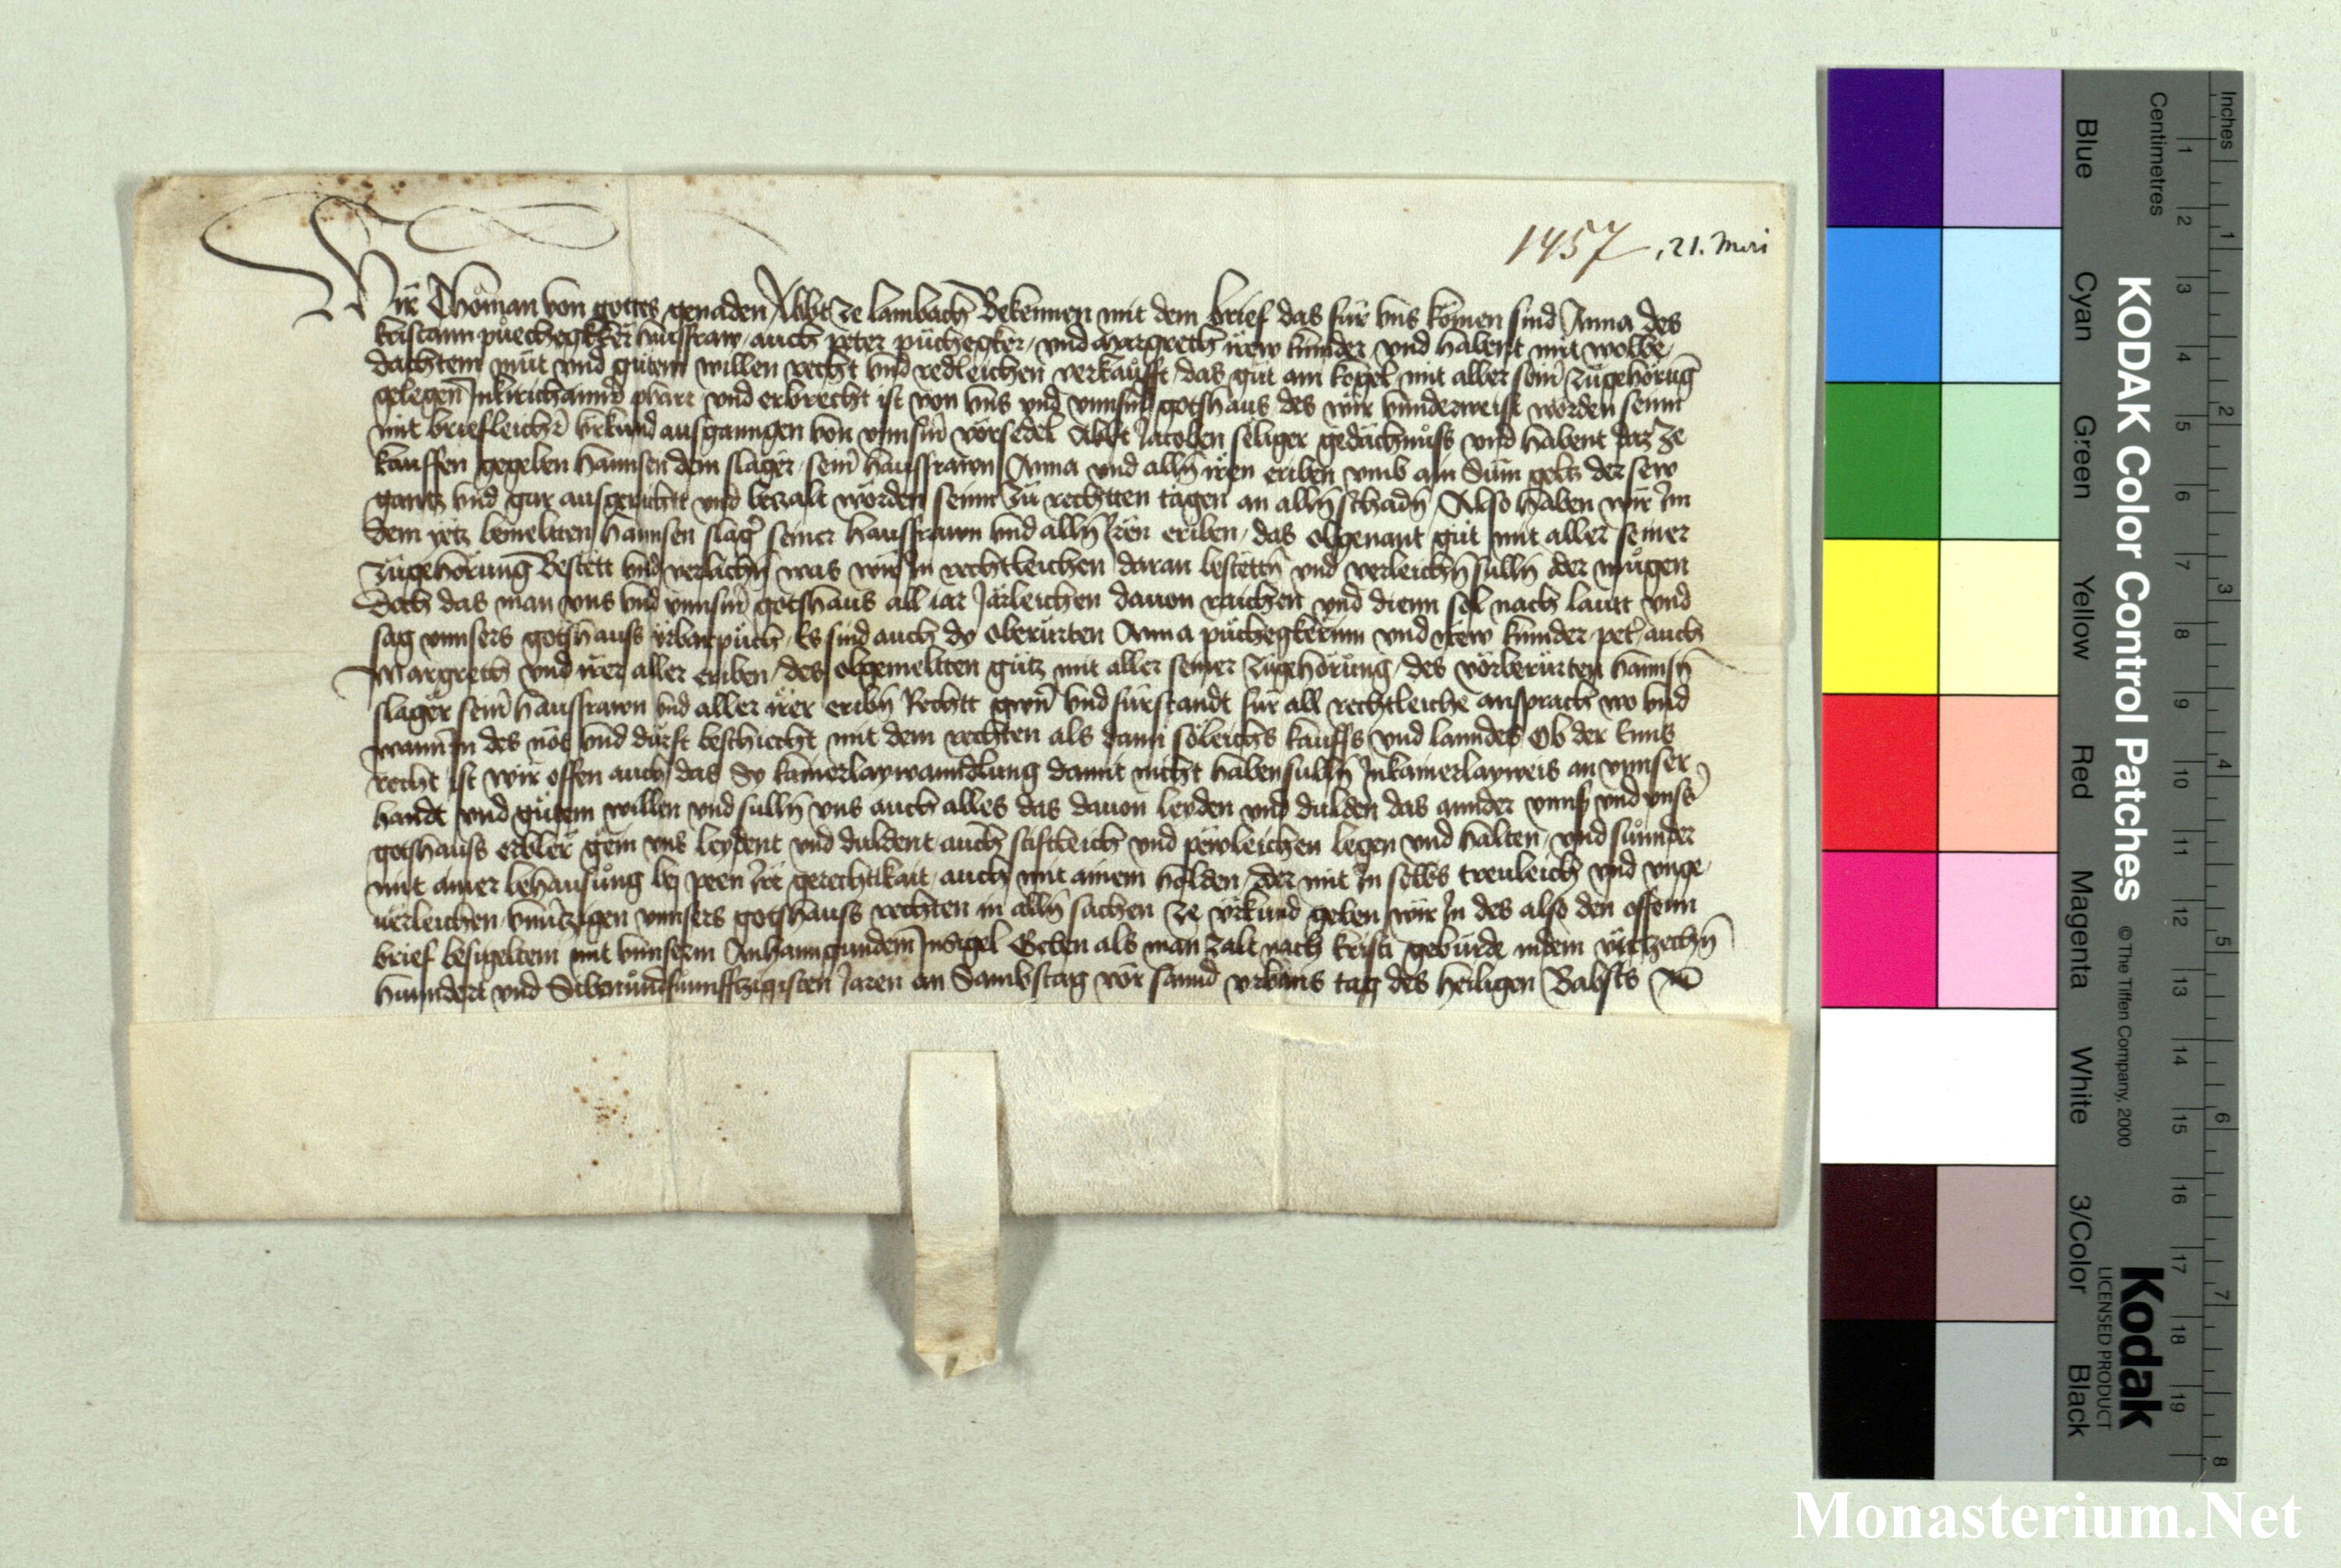 1457, 21. Mai
Wir Thoman von gottes genaden Abbt ze lambach Bekennen mit dem brief das für vns komen sind Anna des
kristann puechegkker hausfraw, auch peter püchegker, vnd Margreth irew kinnder, vnd habent mit wolbe,
dachtem müt vnd gütem willen recht vnd redleichen verkaufft, das güt am kogel, mit aller seiner zugehörung
gelegen In pharr, vnd erbrecht ist von vns vnd vnnserm gotshaus des wir vnnderweist worden seinn
mit briefleicher vrkund ausganngen von vnnserm vorfodern Abbt Jacoben säliger gedächnuss vnd habent daz ze
kauffen gegeben hannsen dem slager, seiner hausfrawn Anna vnd alln iren eriben vmb ain Sum geltz der sew
gantz vnd gar ausgericht vnd betzalt worden seinn zu rechtten tagen an alln schadn Also haben wir Im
dem yetz bemeltten hannsen slager seiner hausfrawn vnd alln Iren eriben, das obgenant güt mit aller seiner
zugehörung Bestett vnd verlichn was wir In rechtleichen daran bestettn vnd verleichn sulln oder mügen
doch das man vns vnd vnnserm gotshaus all iar Järleichen dauon raichen vnd dienn sol nach lautt vnd
sag vnnsers gotshauss vrbarpuch, Es sind auch dy oberürten Anna püchegkerinn vnd irew kinnder, peter auch
Margreth vnd irer aller eriben, des obgemeltten gütz mit aller seiner zugehörung, des vorberürten hannsn
slager seiner hausfrawn vnd aller irer eribn Rechtt gwern vnd fürstandt für all rechtleiche ansprach wo vnd
wann In des not vnd dürft beschiecht mit dem rechten als dann söleichs kauffs vnd lanndes Ob der Enns
recht ist wir offen auch das sy kamerlaywanndlung damit nicht haben sulln In kamerlayweis an vnnser
handt vnd gütem willen vnd sulln vns auch alles das dauon leyden vnd dulden das annder vnnser vnd vnsers
gotshauss erbler gein vns leydent vnd duldent, auch stiftleich vnd pewleichen legen vnd halten, vnd sunnder
mit ainer behausung bey peen Irer gerechtikait, auch mit ainem holden, oder mit In selbs treuleich vnd vnge,
uerleichen, vnnsers gotshauss rechten in alln sachen ze vrkund geben wir In des also den offenn
brief besigeltem mit vnnserm Anhanngundem Insigel Geben als man zalt nach kristi gebürde indem viertzechn
hunndert vnd Sibenundfunnfftzigisten Jaren an Sambstag vor sannd vrbans tag des heiligen Babsts
KODAK Color Control Patches
© The Tiffen Company, 2000
Kodak
LICENSED PRODUCT
Blue
Cyan
Green
Yellow
Red
Magenta
White
3/Color
Black
Centimetres
1 2 3 4 5 6 7 8 9 10 11 12 13 14 15 16 17 18 19
Inches
1 2 3 4 5 6 7 8
Monasterium.Net